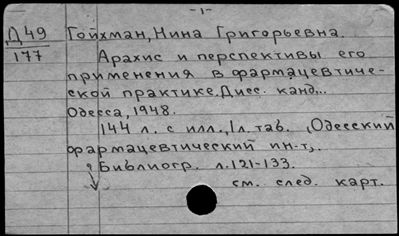 -1-
Д49 Гойхман, Нина Григорьевна.
177 Арахис и перспективы его
применения в фармацевтиче-
ской практике. Дисс. канд...
Одесса, 1948.
144 л. с илл., 1л. таб. (Одесский
фармацевтический ин-т).
Библиогр. л. 121-133.
см. след. карт.